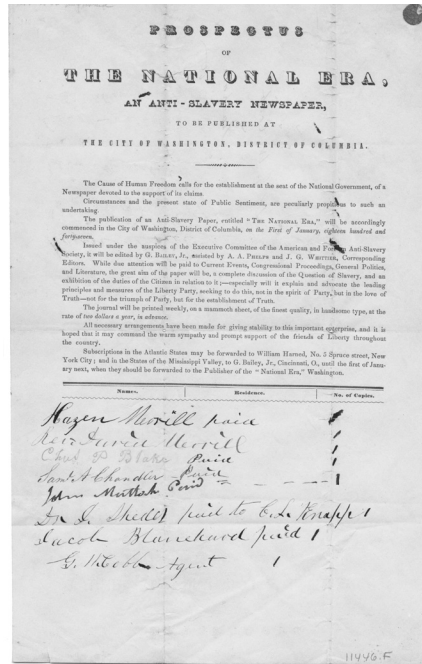 PROSPECTUS
OF
THE NATIONAL ERA,
AN ANTI-SLAVERY NEWSPAPER,
TO BE PUBLISHED AT
THE CITY OF WASHINGTON, DISTRICT OF COLUMBIA.
The Cause of Human Freedom calls for the establishment at the seat of the National Government, of a
Newspaper devoted to the support of its claims.
Circumstances and the present state of Public Sentiment, are peculiarly propitious to such an
undertaking.
The publication of an Anti-Slavery Paper, entitled "THE NATIONAL ERA," will be accordingly
commenced in the City of Washington, District of Columbia, on the First of January, eighteen hundred and
forty-seven.
Issued under the auspices of the Executive Committee of the American and Foreign Anti-Slavery
Society, it will be edited by G. BAILEY, Jr., assisted by A. A. PHELPS and J. G. WHITTIER, Corresponding
Editors. While due attention will be paid to Current Events, Congressional Proceedings, General Politics,
and Literature, the great aim of the paper will be, a complete discussion of the Question of Slavery, and an
exhibition of the duties of the Citizen in relation to it;—especially will it explain and advocate the leading
principles and measures of the Liberty Party, seeking to do this, not in the spirit of Party, but in the love of
Truth—not for the triumph of Party, but for the establishment of Truth.
The journal will be printed weekly, on a mammoth sheet, of the finest quality, in handsome type, at the
rate of two dollars a year, in advance.
All necessary arrangements have been made for giving stability to this important enterprise, and it is
hoped that it may command the warm sympathy and prompt support of the friends of Liberty throughout
the country.
Subscriptions in the Atlantic States may be forwarded to William Harned, No. 5 Spruce street, New
York City; and in the States of the Mississippi Valley, to G. Bailey, Jr., Cincinnati, O., until the first of Janu-
ary next, when they should be forwarded to the Publisher of the "National Era," Washington.
Names. Residence. No. of Copies.
Hazen Merrill paid 1
Rev. David Merrill 1
Chas P. Blake Paid 1
Saml A Chandler Paid 1
John Paid 1
Dr. J. paid to C. L. Knapp 1
Jacob Blanchard paid 1
G. W. Cobb Agent 1
11446.F